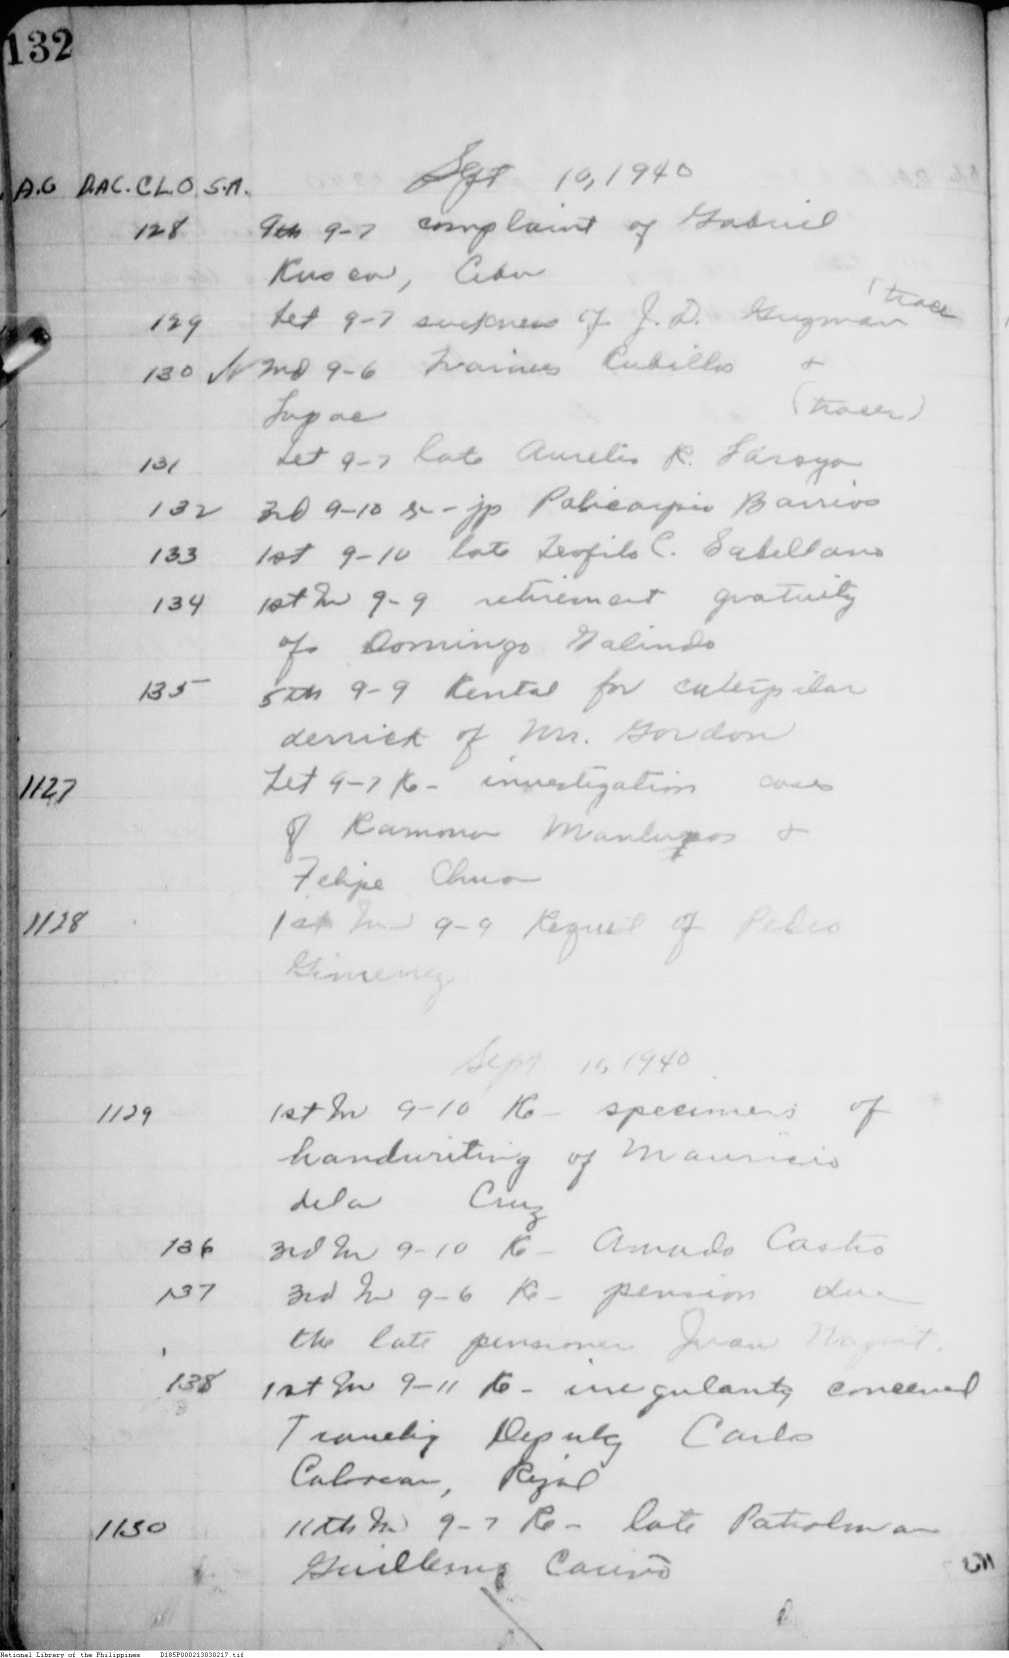 132
Sept 10, 1940
A.G D.A.C. C.L.O. S.A.
128 9th 9-7 complaint of Gabriel
Cebu
(tracer
129 Let 9-7 sickness of J. D. Guzman
130 2nd 9-6 Trainees Cubillo &
(tracer)
131 Let 9-7 late Aurelio R.
132 3rd 9-10 Policarpio Barrios
133 1st 9-10 late Teofilo C. Sabellano
134 1st In 9-9 retirement gratuity
of Domingo Galindo
135 5th 9-9 Rental for caterpilar
derrick of Mr. Gordon
1127 Let 9-7 Re- investigation cases
of Ramona &
Felipe Chua
1128 1st In 9-9 Request of Pedro
Gimenez
Sept 11, 1940
1129 1st In 9-10 Re- specimens of
handwriting of Mauricio
dela Cruz
136 3rd In 9-10 Re- Amado Castro
137 3rd In 9-6 Re- pension due
the late pensioner Juan
138 1st In 9-11 Re- irregularity concerned
Traveling Deputy Carlo
Caloocan, Rizal
1130 11th In 9-7 Re- late Patrolman
Guillermo Cariño
National Library of the Philippines D185P000213030217.tif